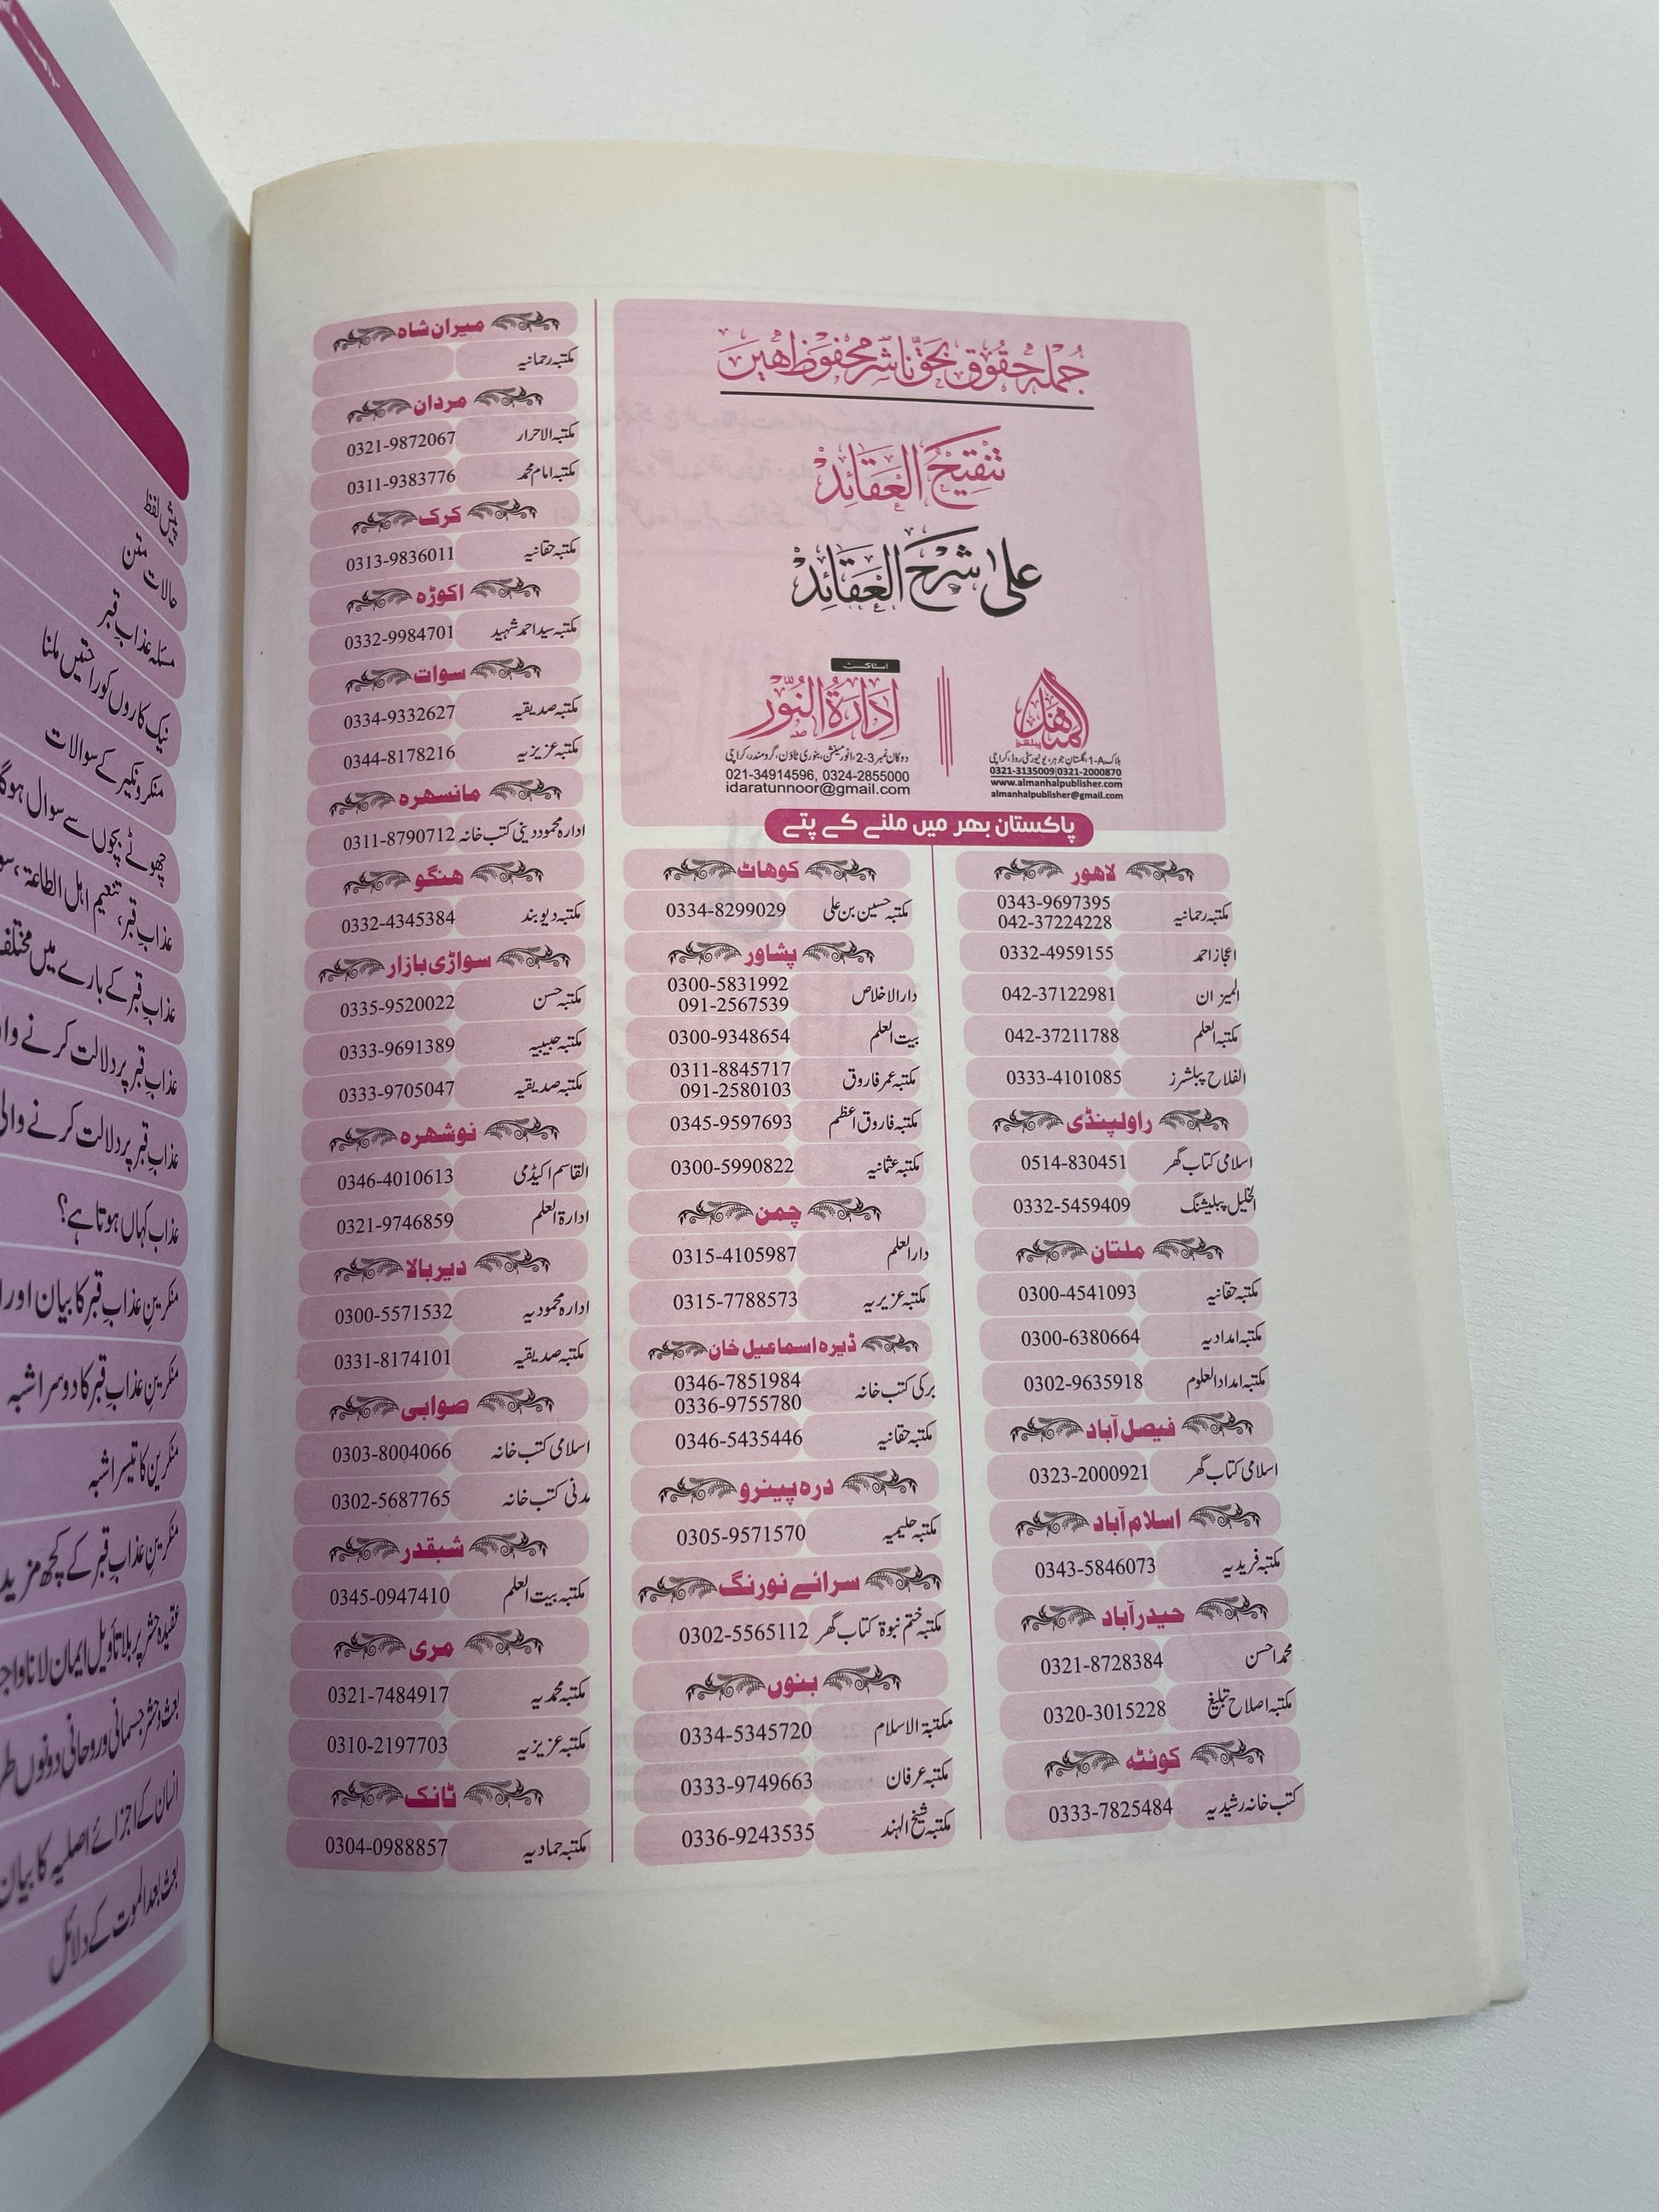 جملہ حقوق بحق ناشر محفوظ ہیں
تنقیح العقائد
علی شرح العقائد
المنهل
پبلشر
بلاک 1-A، گلستان جوہر، یونیورسٹی روڈ، کراچی
0321-3135009|0321-2000870
www.almanhalpublisher.com
almanhalpublisher@gmail.com
اسٹاکسٹ
ادارۃ النور
دوکان نمبر 3-2، انور مینشن، بنوری ٹاؤن، گرومندر، کراچی
021-34914596, 0324-2855000
idaratunnoor@gmail.com
پاکستان بھر میں ملنے کے پتے
لاہور
مکتبہ رحمانیہ 0343-9697395
042-37224228
اعجاز احمد 0332-4959155
المیزان 042-37122981
مکتبہ العلم 042-37211788
الفلاح پبلشرز 0333-4101085
راولپنڈی
اسلامی کتاب گھر 0514-830451
الخلیل پبلیشنگ 0332-5459409
ملتان
مکتبہ حقانیہ 0300-4541093
مکتبہ امدادیہ 0300-6380664
مکتبہ امداد العلوم 0302-9635918
فیصل آباد
اسلامی کتاب گھر 0323-2000921
اسلام آباد
مکتبہ فریدیہ 0343-5846073
حیدر آباد
محمد احسن 0321-8728384
مکتبہ اصلاح تبلیغ 0320-3015228
کوئٹہ
کتب خانہ رشیدیہ 0333-7825484
کوہاٹ
مکتبہ حسین بن علی 0334-8299029
پشاور
دارالاخلاص 0300-5831992
091-2567539
بیت العلم 0300-9348654
مکتبہ عمر فاروق 0311-8845717
091-2580103
مکتبہ فاروق اعظم 0345-9597693
مکتبہ عثمانیہ 0300-5990822
چمن
دارالعلم 0315-4105987
مکتبہ عزیزیہ 0315-7788573
ڈیرہ اسماعیل خان
برکی کتب خانہ 0346-7851984
0336-9755780
مکتبہ حقانیہ 0346-5435446
درہ پینرو
مکتبہ حلیمیہ 0305-9571570
سرائے نورنگ
مکتبہ ختم نبوۃ کتاب گھر 0302-5565112
بنوں
مکتبۃ الاسلام 0334-5345720
مکتبہ عرفان 0333-9749663
مکتبہ شیخ الہند 0336-9243535
میران شاہ
مکتبہ رحمانیہ
مردان
مکتبہ الاحرار 0321-9872067
مکتبہ امام محمد 0311-9383776
کرک
مکتبہ حقانیہ 0313-9836011
اکوڑہ
مکتبہ سید احمد شہید 0332-9984701
سوات
مکتبہ صدیقیہ 0334-9332627
مکتبہ عزیزیہ 0344-8178216
مانسہرہ
ادارہ محمود دینی کتب خانہ 0311-8790712
ہنگو
مکتبہ دیوبند 0332-4345384
سواڑی بازار
مکتبہ حسن 0335-9520022
مکتبہ حبیبیہ 0333-9691389
مکتبہ صدیقیہ 0333-9705047
نوشہرہ
القاسم اکیڈمی 0346-4010613
ادارۃ العلم 0321-9746859
دیر بالا
ادارہ محمودیہ 0300-5571532
مکتبہ صدیقیہ 0331-8174101
صوابی
اسلامی کتب خانہ 0303-8004066
مدنی کتب خانہ 0302-5687765
شبقدر
مکتبہ بیت العلم 0345-0947410
مری
مکتبہ محمدیہ 0321-7484917
مکتبہ عزیزیہ 0310-2197703
ٹانک
مکتبہ حمادیہ 0304-0988857
پیش لفظ
حالات متن
مسئلہ عذاب قبر
نیک کاروں کو راحتیں ملنا
منکر و نکیر کے سوالات
چھوٹے بچوں سے سوال ہوگا
عذاب قبر، تنعیم اہل الطاعۃ،
عذاب قبر کے بارے میں مختلف
عذاب قبر پر دلالت کرنے
عذاب قبر پر دلالت کرنے والی
عذاب کہاں ہوتا ہے؟
منکرین عذاب قبر کا بیان اور
منکرین عذاب قبر کا دوسرا شبہ
منکرین کا تیسرا شبہ
منکرین عذاب قبر کے کچھ مزید
عقیدہ حشر پر بلا تاویل ایمان لانا
بعث و حشر جسمانی و روحانی دونوں
انسان کے اجزائے اصلیہ کا بیان
بعث بعد الموت کے دلائل